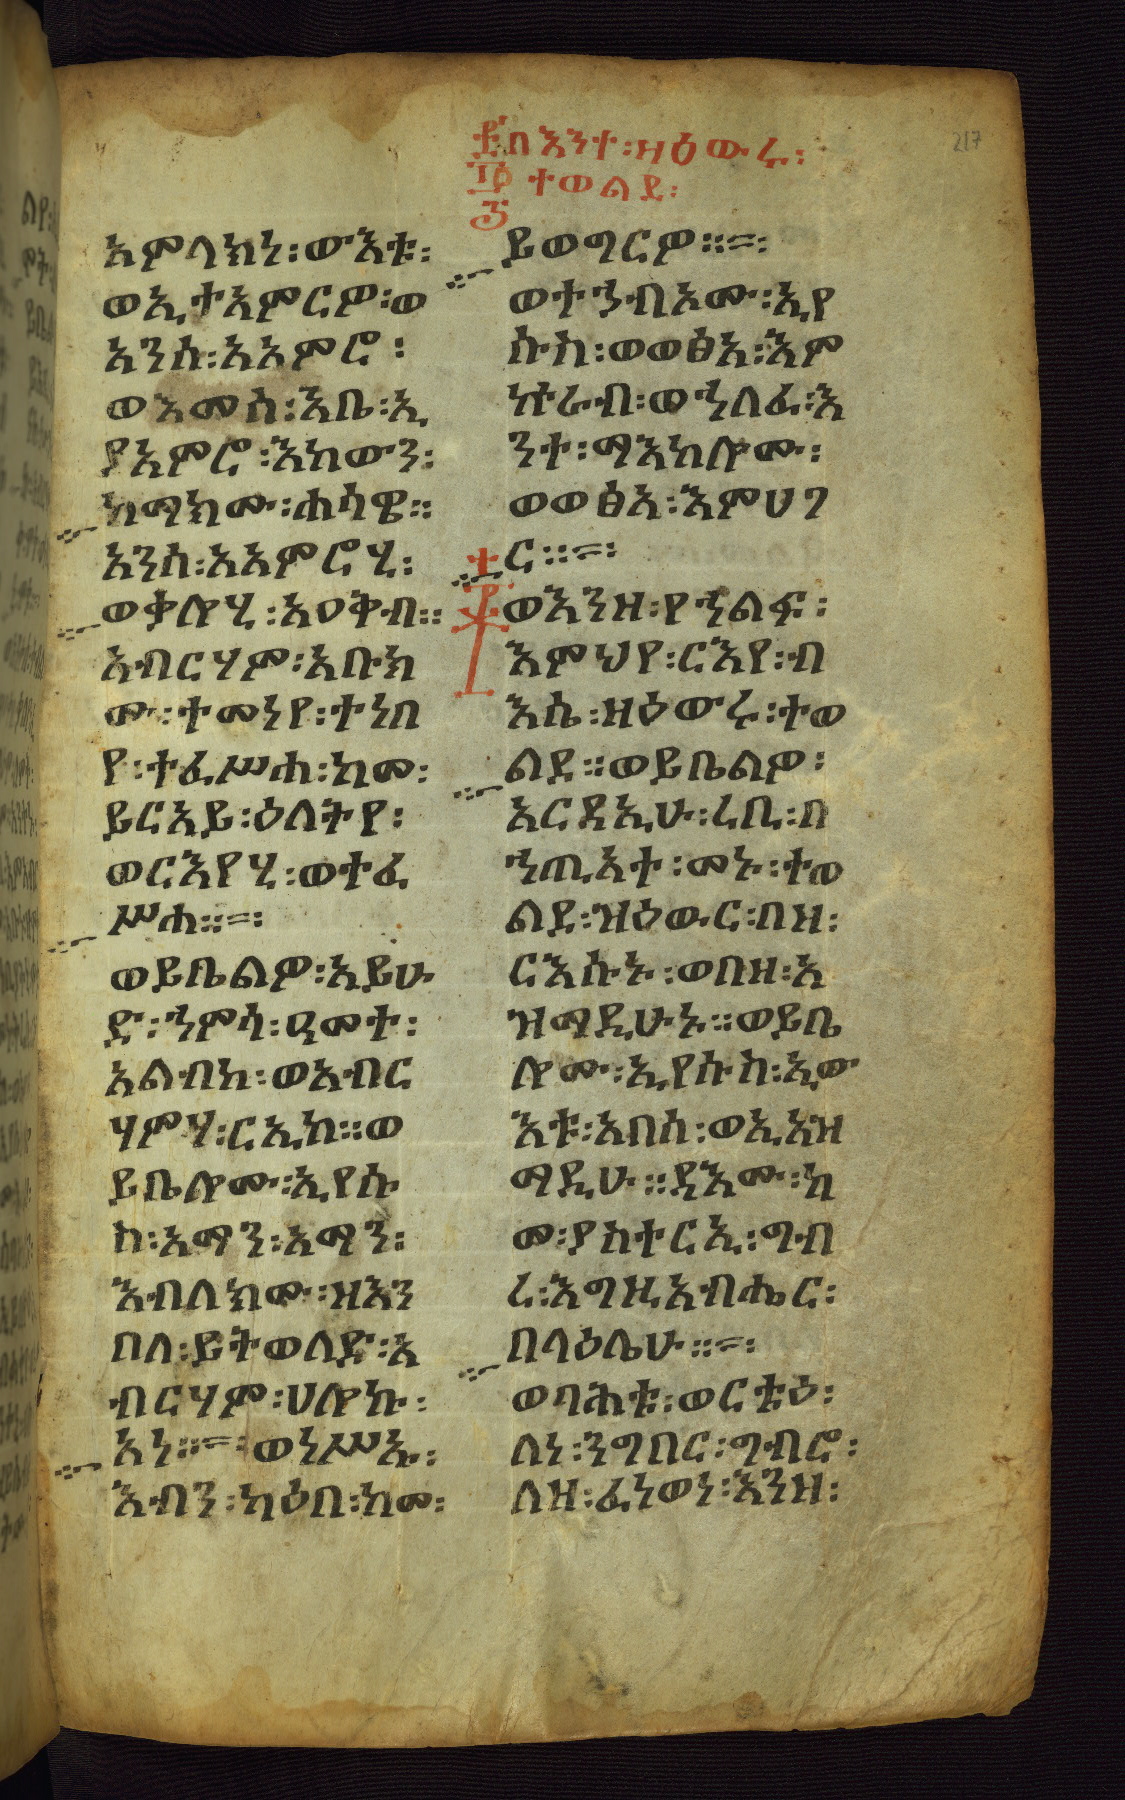 ፲በእንተ፡ዘዕውሩ፡
፲፬ ተወልደ፡
217
አምላክነ፡ውእቱ፡
ወኢተአምርዎ፡ወ
አንሰ፡አአምሮ፡
ወእመሰ፡እቤ፡ኢ
ያአምሮ፡እከውን፡
ከማክሙ፡ሐሳዌ።
አንሰ፡አአምሮሂ፡
ወቃሎሂ፡አዐቅብ።
አብርሃም፡አቡክ
ሙ፡ተመነየ፡ተነበ
የ፡ተፈሥሐ፡ከመ፡
ይርአይ፡ዕለትየ፡
ወርእየሂ፡ወተፈ
ሥሐ።=፡
ወይቤልዎ፡አይሁ
ድ፡ኀምሳ፡ዓመተ፡
አልብከ፡ወአብር
ሃምሃ፡ርኢከ።ወ
ይቤሎሙ፡ኢየሱ
ስ፡አማን፡አማን፡
እብለክሙ፡ዘእን
በለ፡ይትወለድ፡አ
ብርሃም፡ሀሎኩ፡
አነ።=፡ወነሥኡ፡
እብን፡ካዕበ፡ከመ፡
ይወግርዎ።=፡
ወተኀብአሙ፡ኢየ
ሱስ፡ወወፅአ፡እም
ኵራብ፡ወኀለፈ፡እ
ንተ፡ማእከሎሙ፡
ወወፅአ፡እምሀገ
ር።=፡
ወእንዘ፡የኀልፍ፡
እምህየ፡ርእየ፡ብ
እሴ፡ዘዕውሩ፡ተወ
ልደ።ወይቤልዎ፡
አርዳኢሁ፡ረቢ፡በ
ኀጢአተ፡መኑ፡ተወ
ልደ፡ዝዕውር፡በዘ፡
ርእሱኑ፡ወበዘ፡አ
ዝማዲሁኑ።ወይቤ
ሎሙ፡ኢየሱስ፡ኢው
እቱ፡አበሰ፡ወኢአዝ
ማዲሁ።ዳእሙ፡ከ
መ፡ያስተርኢ፡ግብ
ረ፡እግዚአብሔር፡
በላዕሌሁ።=፡
ወባሕቱ፡ወርቱዕ፡
ለነ፡ንግበር፡ግብሮ፡
ለዘ፡ፈነወነ፡እንዘ፡